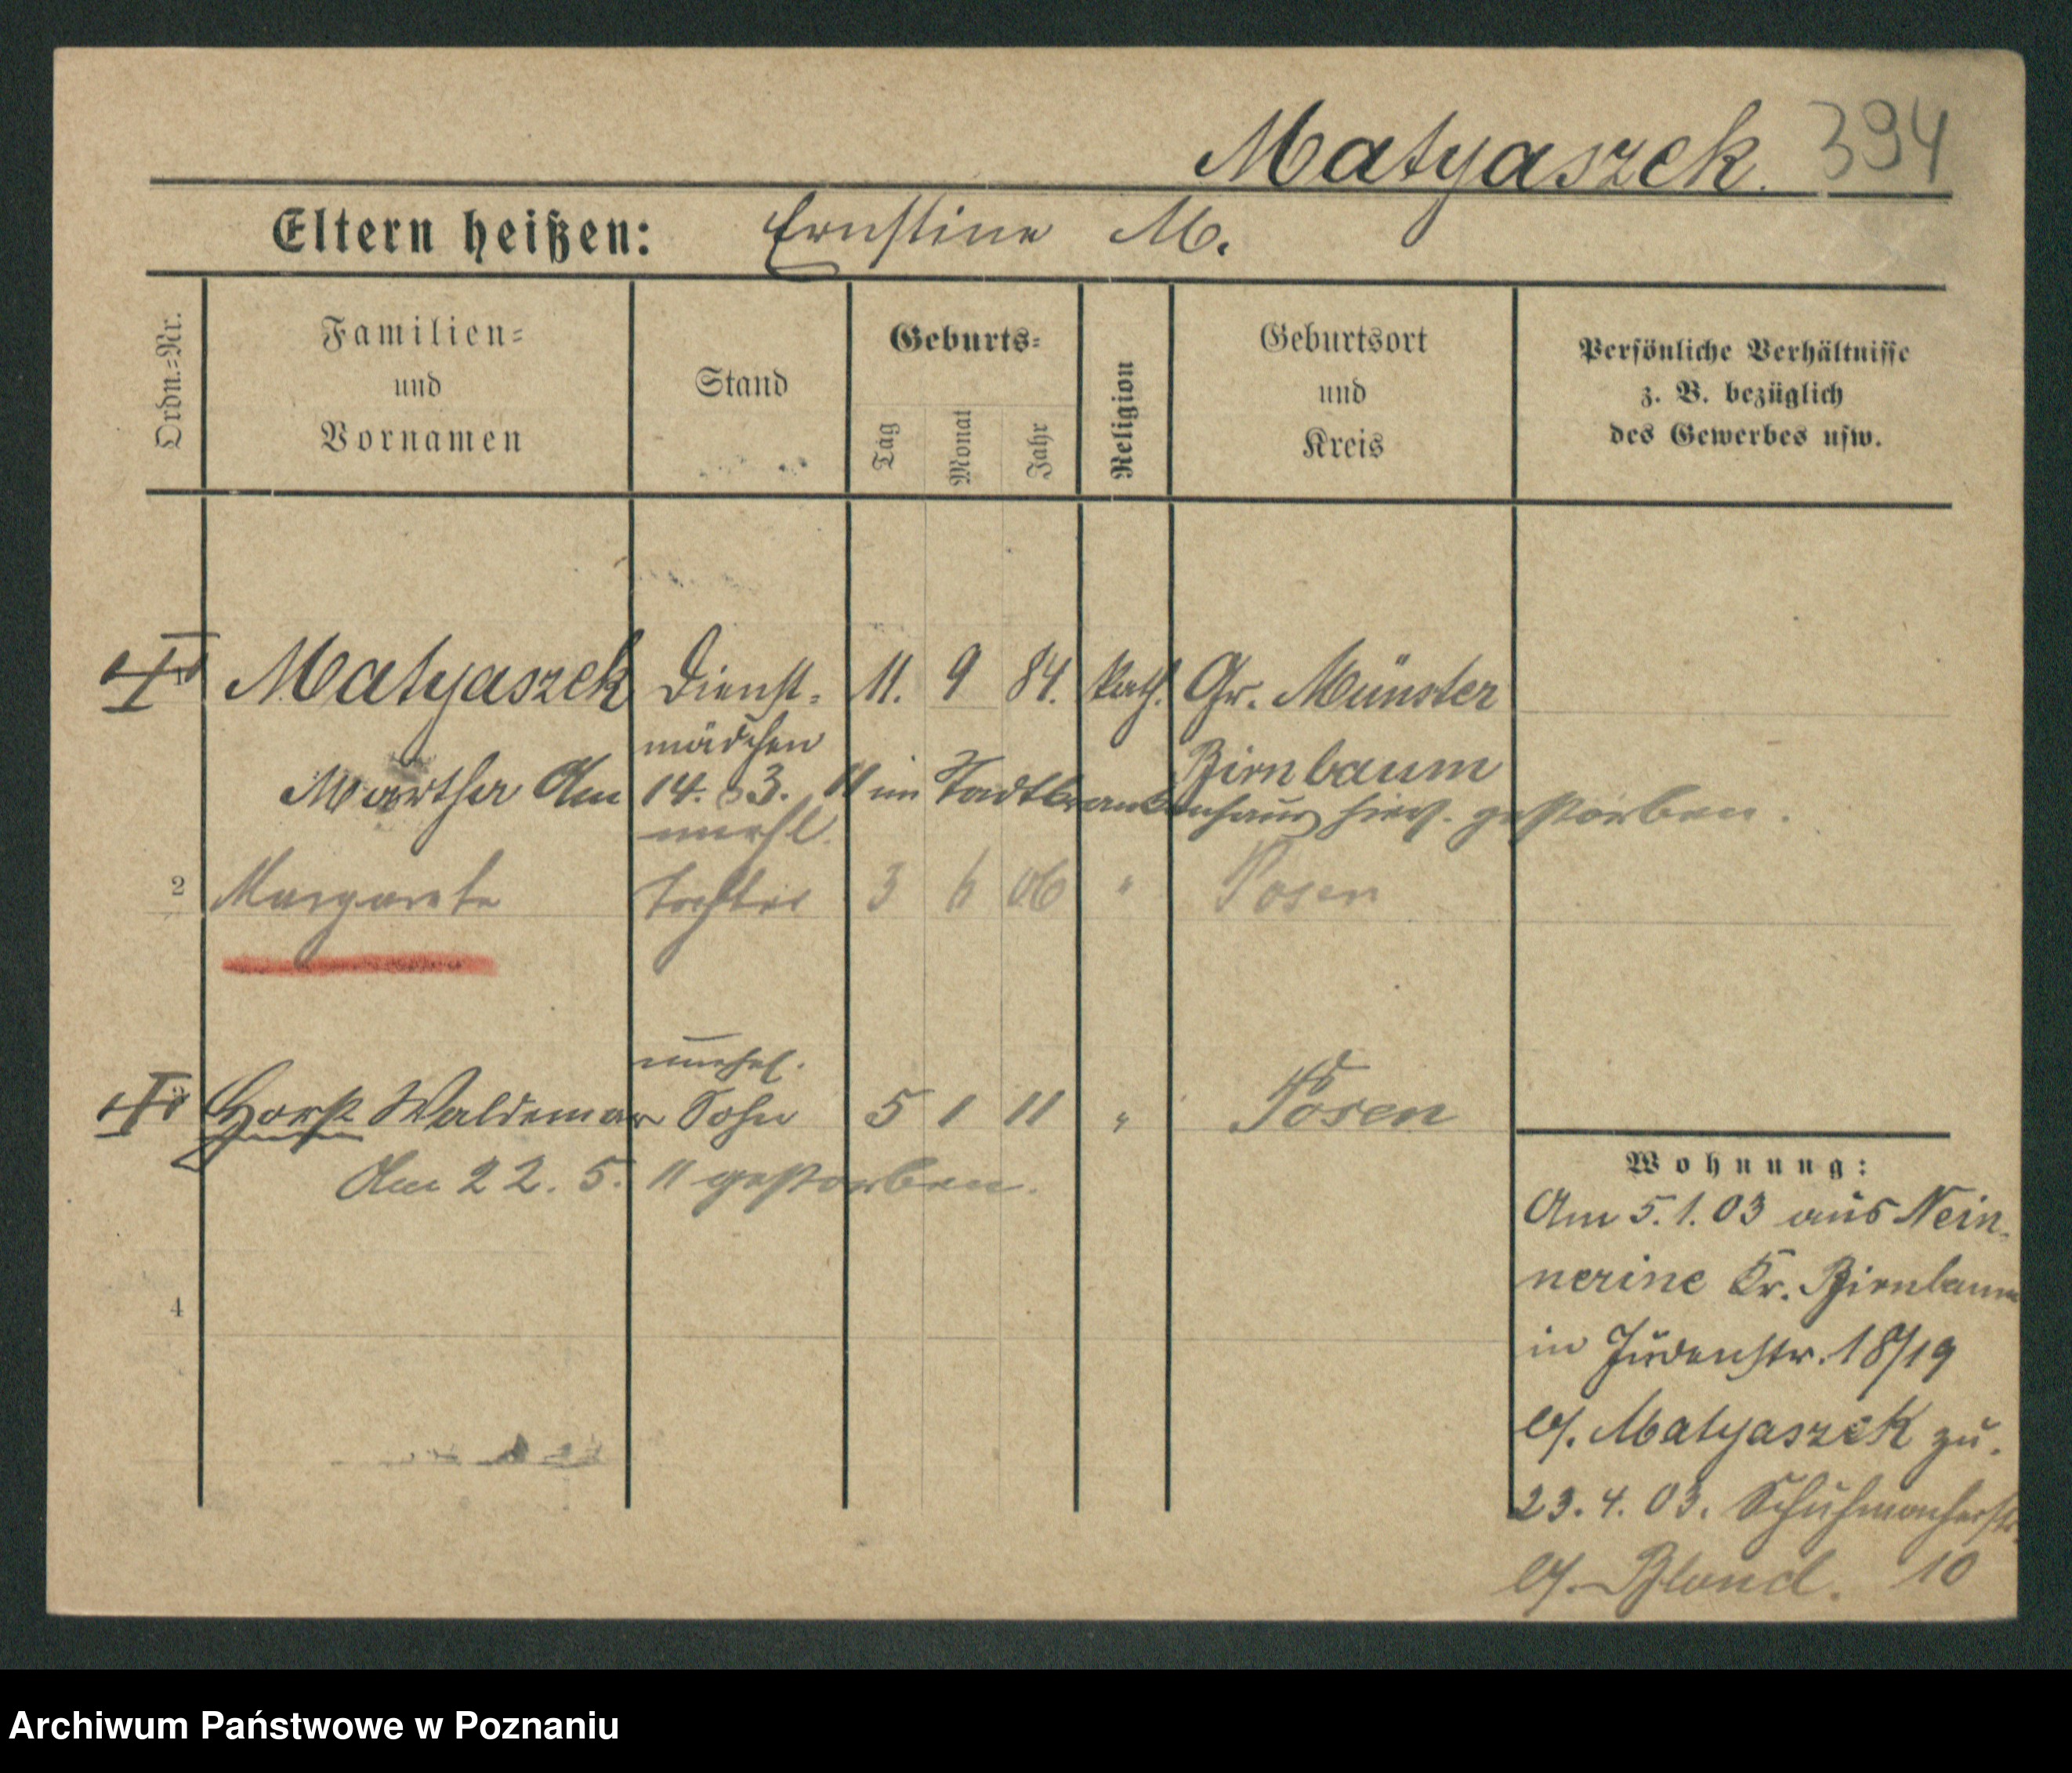 Matyaszek. 394
Eltern heißen: Ernstine M.
Ordn.=Nr.
Familien=
und
Vornamen
Stand
Geburts=
Tag
Monat
Jahr
Religion
Geburtsort
und
Kreis
Persönliche Verhältnisse
z. B. bezüglich
des Gewerbes usw.
1 Matyaszek Dienst= 11. 9 84. kath. Gr. Münster
mädchen Birnbaum
Martha Am 14. 3. 11 im Stadtkrankenhaus hies. gestorben.
unehl.
2 Margarete Tochter 3 6 06 " Posen
unehel.
3 Horst Waldemar Sohn 5 1 11 " Posen
Am 22. 5. 11 gestorben.
4
Wohnung:
Am 5. 1. 03 aus Nein-
nerine Kr. Birnbaum
in Judenstr. 18/19
b/. Matyaszek zu.
23. 4. 03. Schuhmacherstr.
b/. Blond. 10
Archiwum Państwowe w Poznaniu